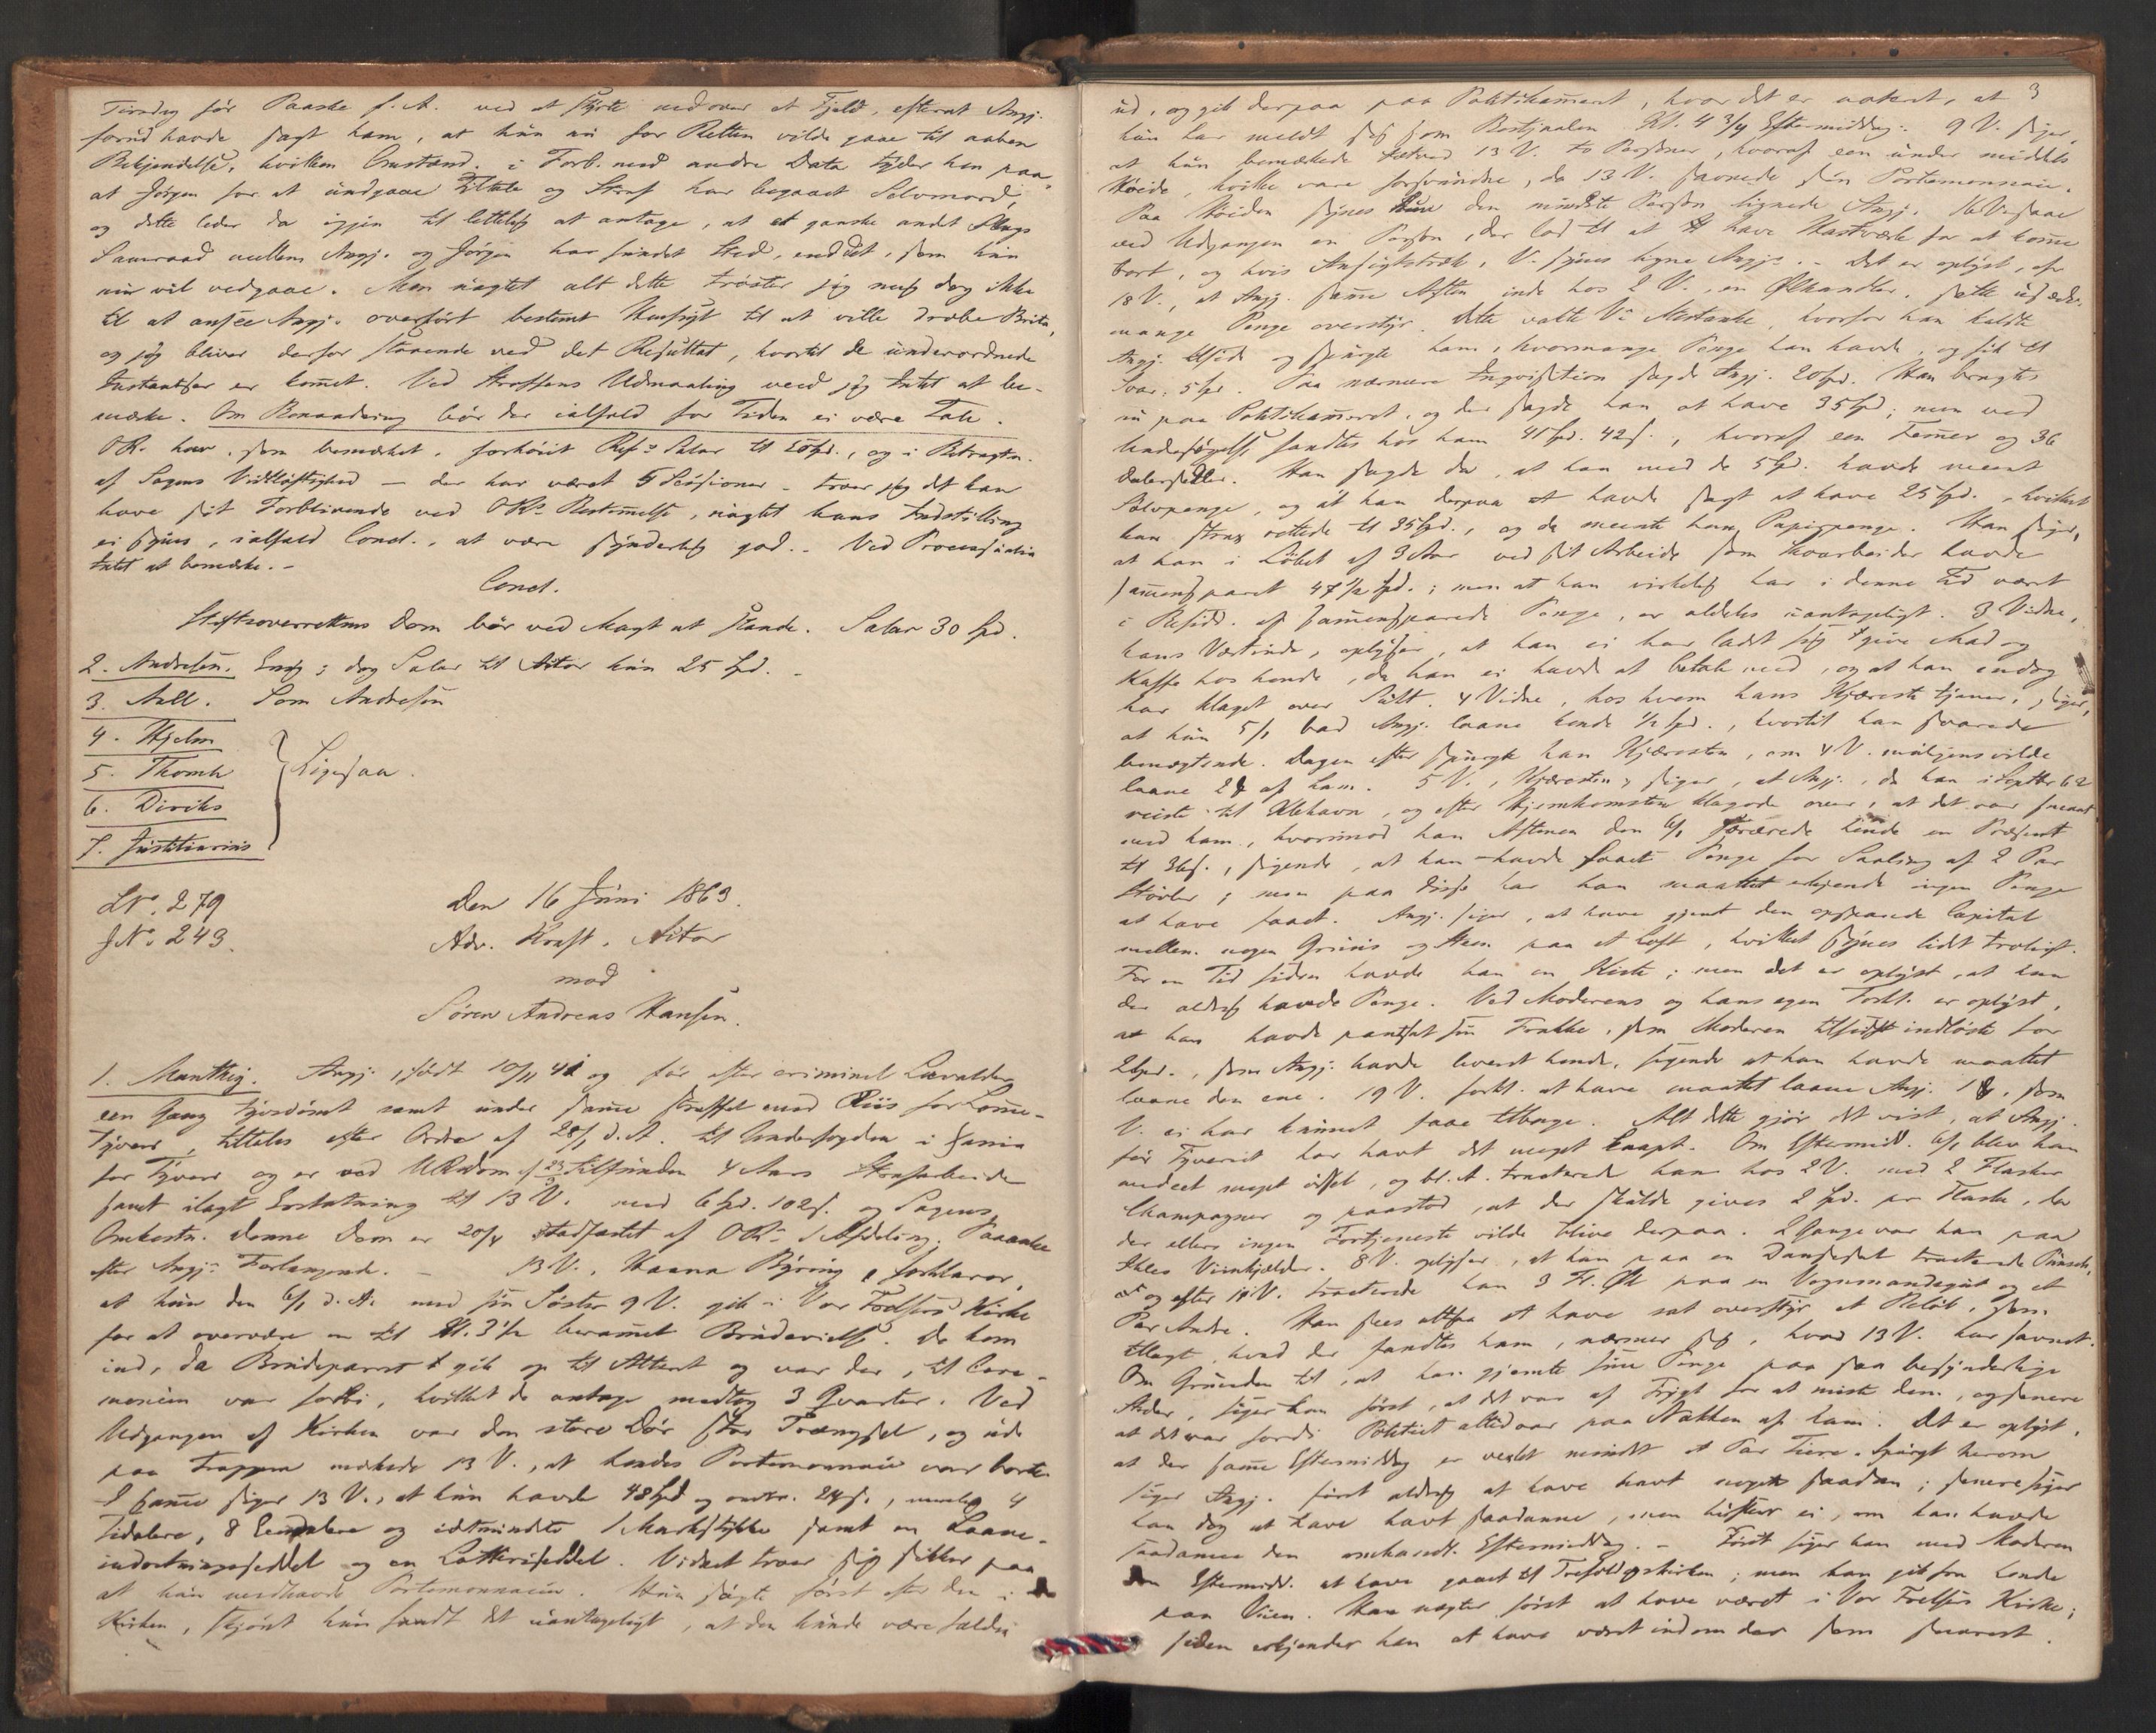 Tirsdag før Paaske f. A. ved at styrte ned over et Fjeld, efterat Angj.
forud havde sagt ham, at hun nu for Retten vilde gaae til aaben
Bekjendelse, hvilken Omstænd. i Forb. med andre Data tyder hen paa,
at Jørgen for at undgaae Tiltale og Straf har begaaet Selvmord,
og dette leder da igjen til lettelig at antage, at et ganske andet Slags
Samraad mellem Angj. og Jørgen har fundet Sted, end det, som hun
nu vil vedgaae. Men uagtet alt dette trøster jeg mig dog ikke
til at ansee Angj. overført bestemt Hensigt til at ville dræbe Brita,
og jeg bliver derfor staaende ved det Resultat, hvortil de underordnede
Instantser er kommet. Ved Straffens Udmaaling veed jeg Intet at be-
mærke. Om Benaadning bør der ialfald for Tiden ei være Tale.
OR. har, som bemærket, forhøiet Refs Salar til 50 Spd., og i Betragtn.
af Sagens Vidtløftighed — der har været 5 Sessioner – troer jeg det kan
have sit Forblivende ved ORs Bestemmelse, uagtet hans Indstilling
ei synes, ialfald Cond., at være synderlig god. – Ved Processualia
Intet at bemærke. –
Concl.
Stiftsoverrettens Dom bør ved Magt at stande. Salar 30 Spd.
2. Andresen. Enig; dog Salar til Aktor kun 25 Spd. –
3. Aall. Som Andresen
4. Hjelm
5. Thomle
Ligesaa.
6. Diriks
7. Justitiarius
LNo. 279
Den 16 Juni 1863.
JNo. 243.
Adv. Kraft, Aktor
mod
Søren Andreas Hansen.
1. Manthey. Angj., født 10/11 41 og før efter criminel Lavalder
een Gang tyvsdømt samt under samme straffet med Riis for Lomme-
Tyveri, tiltales efter Ordre af 28/1 d. A. til Undersøgden i Xania
for Tyveri og er ved URsdom af 23/3 tilfunden 4 Aars Strafarbeide
samt ilagt Erstatning til 13 V. med 6 Spd. 102 s. og Sagens
Omkostn. Denne Dom er 20/4 stadfæstet af ORs 1 Afdeling. Paaanke
efter Angjs Forlangende. – 13 V., Hanna Byring, forklarer,
at hun den 6/1 d. A. med sin Søster 9 V. gik i Vor Frelsers Kirke
for at overvære en til Kl. 3 1/2 berammet Brudevielse. De kom
ind, da Brudeparret gik op til Alteret og var der, til Cere-
monien var forbi, hvilket de antage medtog 3 Qvarter. Ved
Udgangen af Kirken var den store Dør stor Trængsel, og ude
paa Trappen mærkede 13 V., at hendes Portemonnaie var borte.
I samme siger 13 V., at hun havde 48 Spd og omtr. 24 s., nemlig 4
Tidalere, 8 Eendalere og idetmindste 1 Markstykke samt en Laane-
indretningsseddel og en Lotteriseddel. Vidnet troer sig sikker paa,
at hun medhavde Portemonnaien. Hun søgte først efter den i
Kirken, skjønt hun fandt det uantageligt, at den kunde være falden
3
ud, og gik derpaa paa Politikammeret, hvor det er noteret, at
hun har meldt sig som Bestjaalen Kl. 4 3/4 Eftermiddag. 9 V. siger,
at hun bemærkede tætved 13 V. to Personer, hvoraf een under middels
Høide, hvilke vare forsvundne, da 13 V. savnede sin Portemonnaie.
Paa Høiden synes hun den mindste Person lignede Angj. 16 V. saae
ved Udgangen en Person, der lod til at have Hastværk for at komme
bort, og hvis Ansigtstræk, V. synes ligne Angjs. – Det er oplyst, af
18 V., at Angj. samme Aften inde hos 2 V., en Ølhandler, satte usædv.
mange Penge overstyr. Dette vakte Vs Mistanke, hvorfor han kaldte
Angj. tilside og spurgte ham, hvormange Penge han havde, og fik til
Svar: 5 Spd. Paa nærmere Inqvisition sagde Angj. 20 Spd. Han bragtes
nu paa Politikammeret, og der sagde han at have 35 Spd; men ved
Undersøgelse fandtes hos ham 41 Spd. 42 s., hvoraf een Femmer og 36
Dalersedler. Han sagde da, at han med de 5 Spd. havde meent
Sølvpenge, og at han derpaa havde sagt at have 25 Spd., hvilket
han strax rettede til 35 Spd., og da meente han Papirpenge. Han siger,
at han i Løbet af 3 Aar ved sit Arbeide som Skoarbeider havde
sammensparet 47 1/2 Spd.; men at han virkelig har i denne Tid været
i Besidd. af sammensparede Penge, er aldeles uantageligt. 3 Vidne,
hans Værtinde, oplyser, at han ei har ladet sig give Mad og
Kaffe hos hende, da han ei havde at betale med, og at han endog
har klaget over Sult. 4 Vidne, hos hvem hans Kjæreste tjener, siger,
at hun 5/1 bad Angj. laane hende 1/2 Spd., hvortil han svarede
benægtende. Dagen efter spurgte han Kjæresten, om 4 V. muligens vilde
laane 2 af ham. 5 V., Kjæresten, siger, at Angj., da han i Septbr 62
reiste til Khavn, og efter Hjemkomsten klagede over, at det var smaat
med ham, hvorimod han Aftenen den 6/1 forærede hende en Præsent
til 36 s., sigende, at han havde faaet Penge for Saaling af 2 Par
Støvler; men paa disse har han maattet erkjende ingen Penge
at have faaet. Angj. siger, at have gjemt den opsparede Capital
mellem nogen Gruus og Steen paa et Loft, hvilket synes lidet troligt.
For en Tid siden havde han en Kiste; men det er oplyst, at han
der aldrig havde Penge. Ved Moderens og hans egen Forkl. er oplyst,
at han havde pantsat sin Frakke, som Moderen tilsidst indløste for
2 Spd., som Angj. havde leveret hende, sigende at han havde maattet
laane den ene. 19 V. forkl. at have maattet laane Angj. 1, som
V. ei har kunnet faae tilbage. Alt dette gjør det vist, at Angj.
før Tyveriet har havt det meget knapt. Om Eftermidd. 6/1 blev han
meget ødsel, og bl. A. tracterede han hos 2 V. med 2 Flasker
Champagner og paastod, at der skulde gives 2 Spd. pr Flaske, da
der ellers ingen Fortjeneste vilde blive derpaa. 2 Gange var han paa
Viinkjelder. 8 V. oplyser, at han paa en Dansesal tracterede Punsch,
og efter 10 V. tracterede han 3 Fl. Øl paa en Vognmandsgut og et
Par Andre. Han sees altsaa at have sat overstyr et Beløb, som
tillagt, hvad der fandtes ham, nærmer sig, hvad 13 V. har savnet.
Om Grunden til, at han gjemte sine Penge paa saa besynderlige
Steder, siger han først, at det var af Frygt for at miste dem, og senere
at det var fordi Politiet altid var paa Nakken af ham. Det er oplyst,
at der samme Eftermiddag er vexlet mindst et Par Tiere. Spurgt herom
siger Angj. først aldrig at have havt nogen saadan; senere siger
han dog at have havt saadanne, men husker ei, om han havde
saadanne den omhandl. Eftermiddag. – Først siger han med Moderen
den Eftermidd. at have gaaet til Trefoldigskirken; men han gik fra hende
paa Veien. Han nægter først at have været i Vor Frelsers Kirke;
siden erkjender han at have været indom der som snarest.